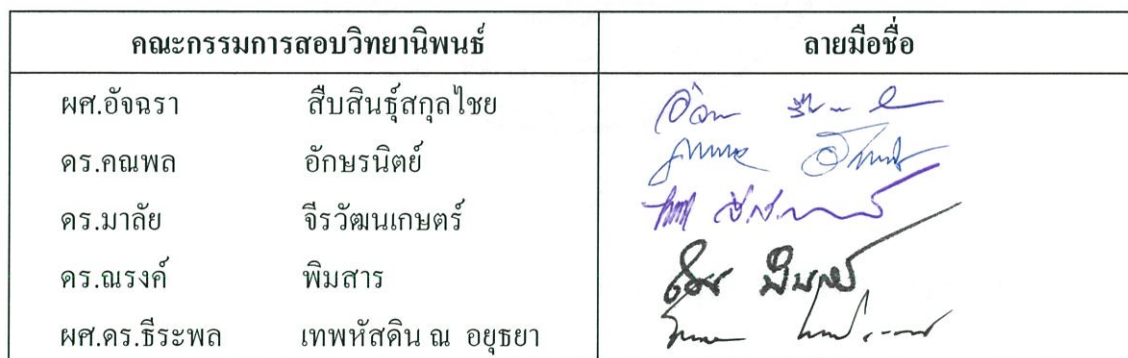 คณะกรรมการสอบวิทยานิพนธ์ ลายมือชื่อ
ผศ.อัจฉรา สืบสินธุ์สกุลไชย
ดร.คณพล อักษรนิตย์
ดร.มาลัย จีรวัฒนเกษตร์
ดร.ณรงค์ พิมสาร
ผศ.ดร.ธีระพล เทพหัสดิน ณ อยุธยา